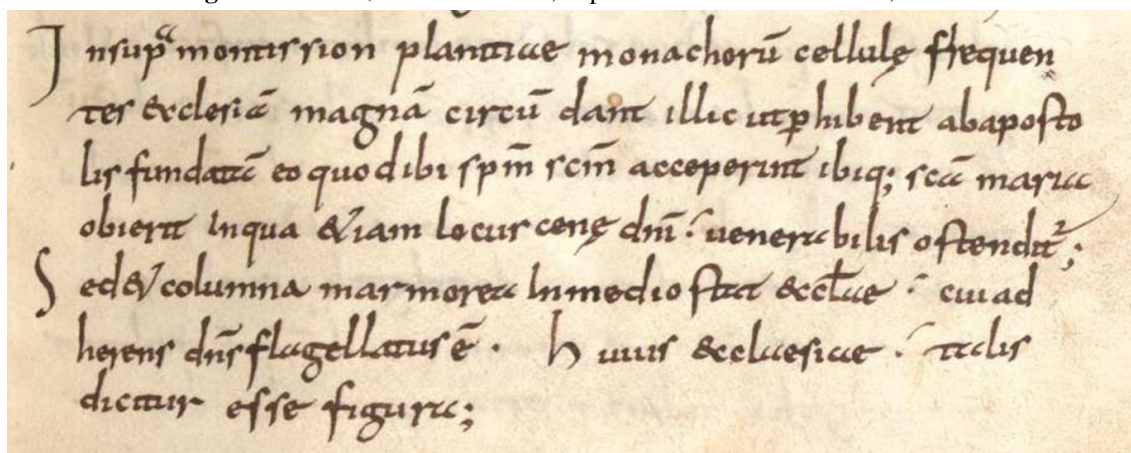 Insup̄ montis sion planitiae monachorū cellulę frequen
tes &cclesiā magnā circū dant illic ut ꝑhibent abaposto
lis fundatā eo quod ibi spm̄ scm̄ acceperint ibiq; scā maria
obierit Inqua &iam locus cenę dnī · uenerabilis ostendit᷑;
Sed& columna marmorea Inmedio stat &ccl̄ae · cui ad
herens dn̄s flagellatus ē · Huius &cclaesiae · talis
dicitur esse figura;